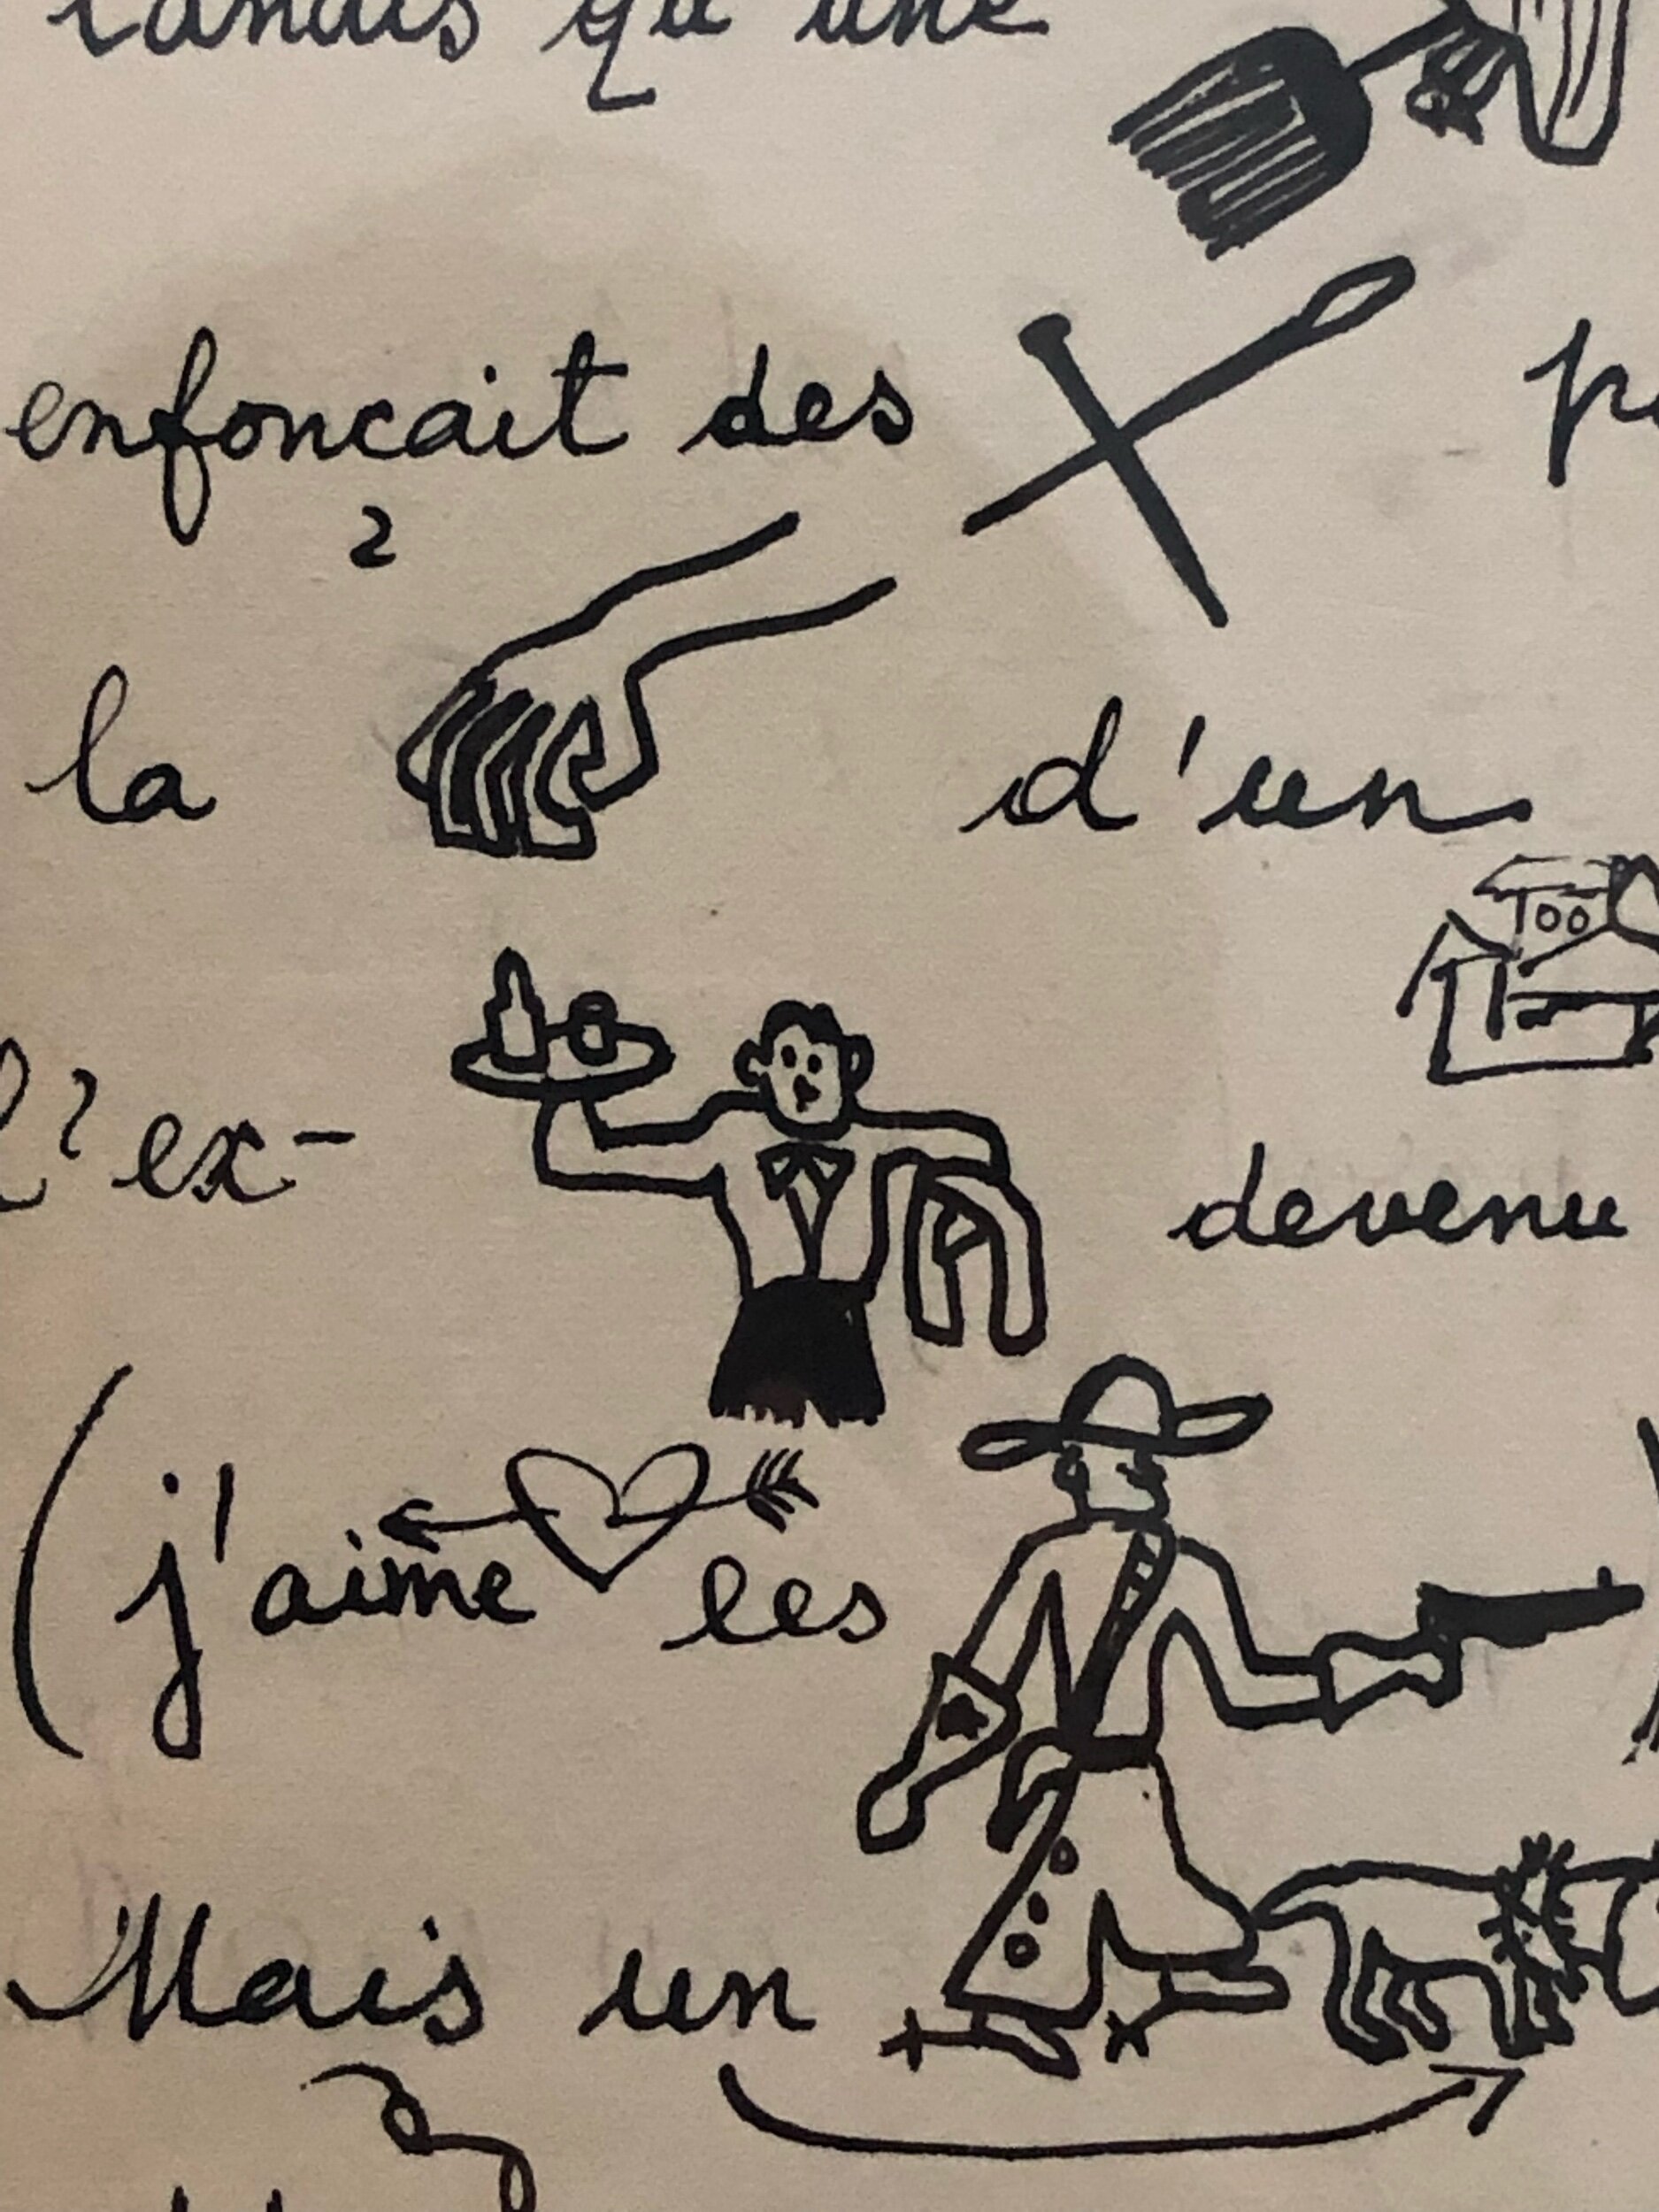 tandis qu'une
enfoncait des
2
la d'un
l'ex- devenu
(j'aime les )
Mais un